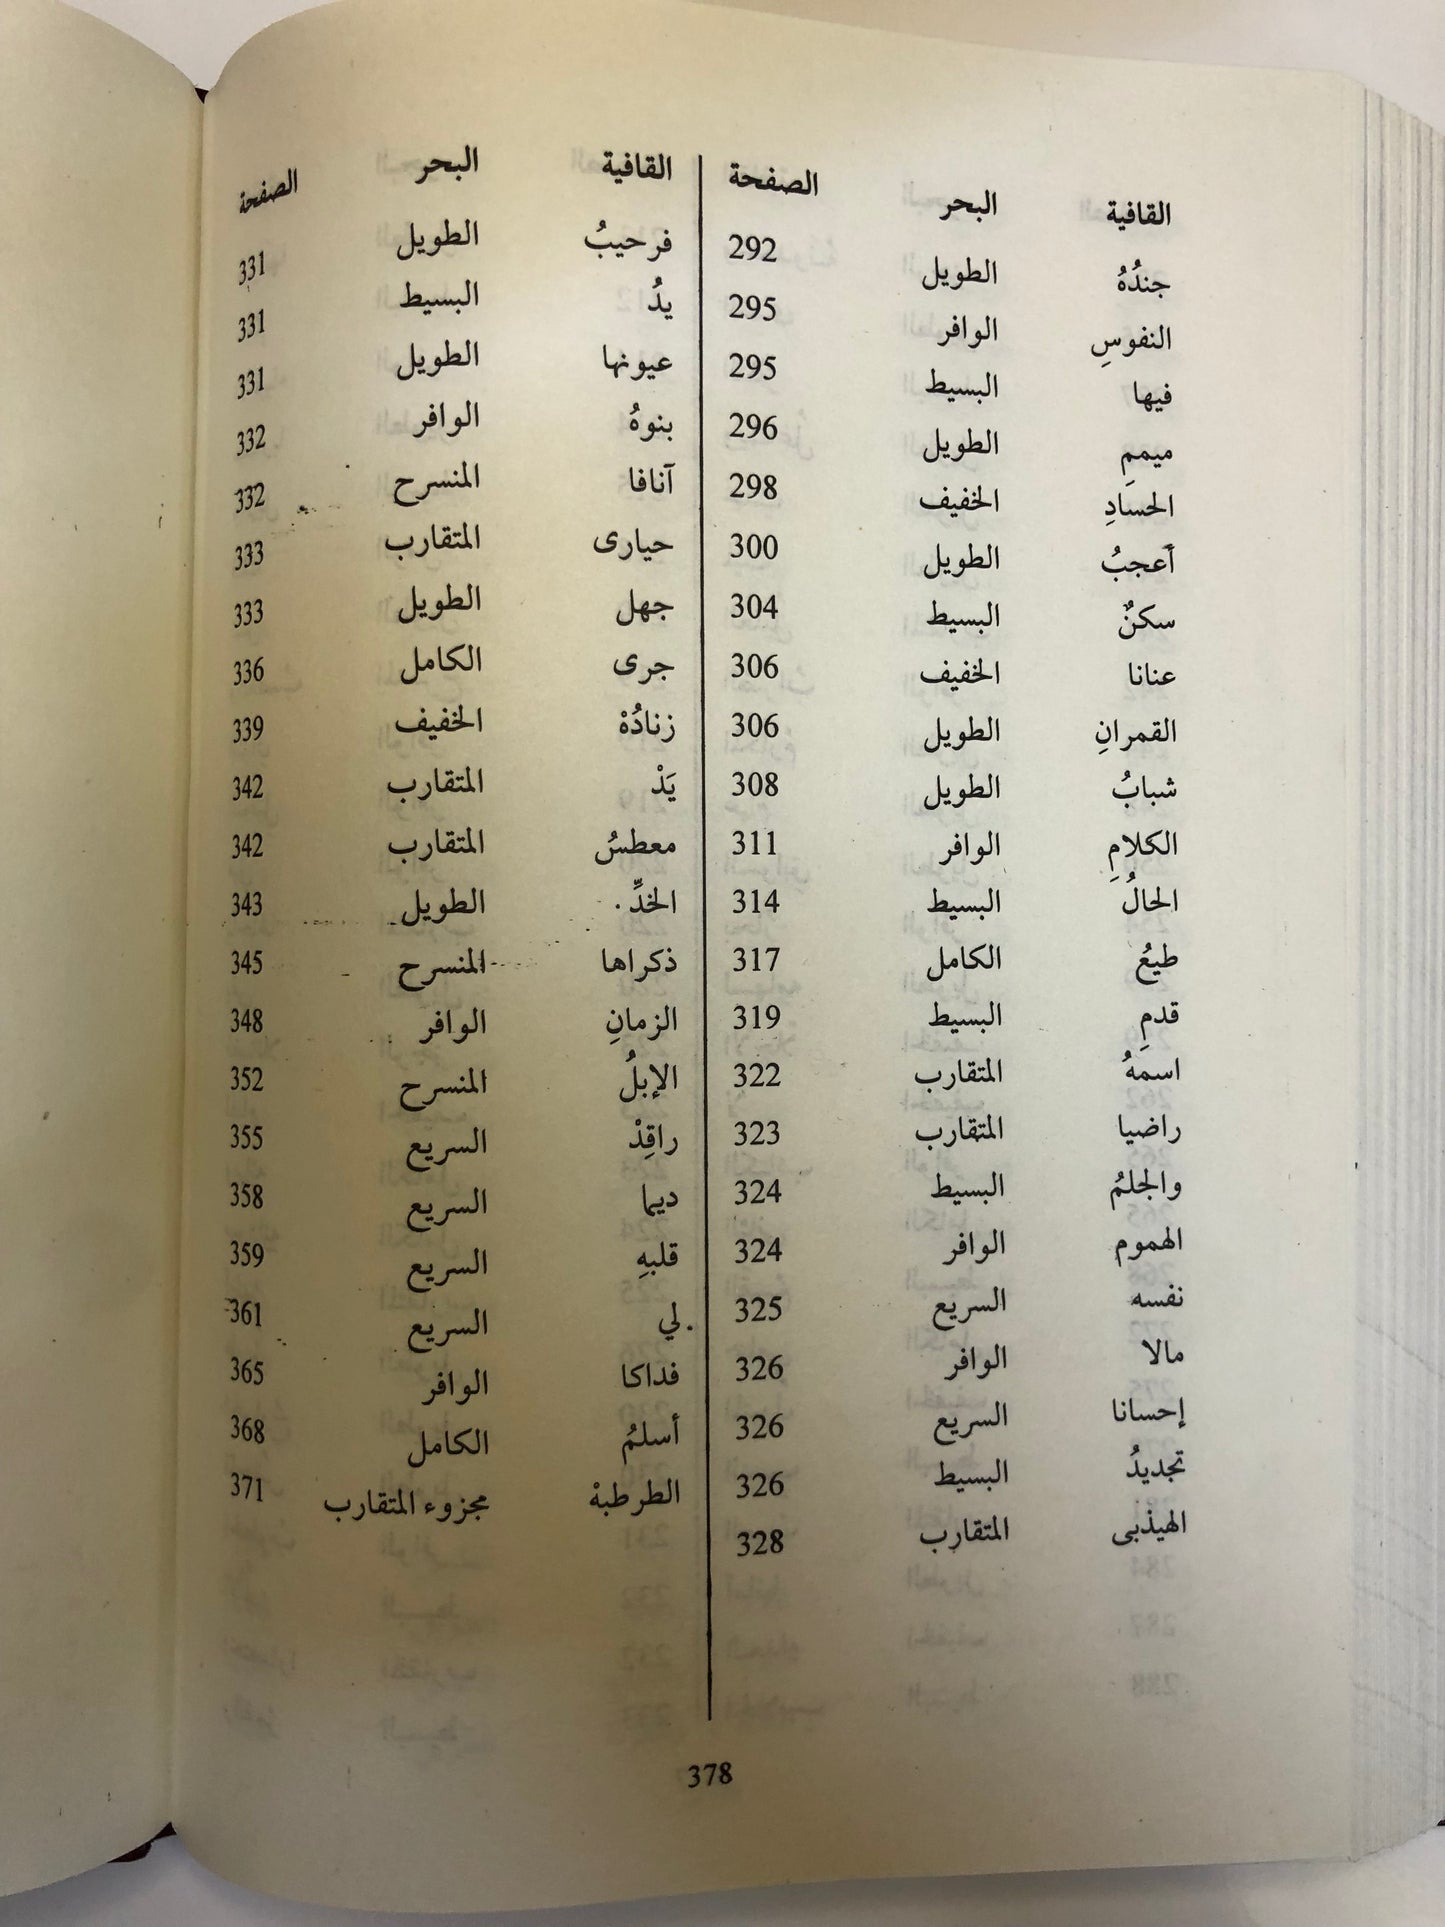 القافية البحر الصفحة
جندُهُ الطويل 292
النفوسِ الوافر 295
فيها البسيط 295
ميممِ الطويل 296
الحسادِ الخفيف 298
أعجبُ الطويل 300
سكنٌ البسيط 304
عنانا الخفيف 306
القمرانِ الطويل 306
شبابُ الطويل 308
الكلامِ الوافر 311
الحالُ البسيط 314
طيعُ الكامل 317
قدمِ البسيط 319
اسمهُ المتقارب 322
راضيا المتقارب 323
والجلمُ البسيط 324
الهموم الوافر 324
نفسه السريع 325
مالا الوافر 326
إحسانا السريع 326
تجديدُ البسيط 326
الهيذبى المتقارب 328
القافية البحر الصفحة
فرحيبُ الطويل 331
يدُ البسيط 331
عيونها الطويل 331
بنوهُ الوافر 332
آنافا المنسرح 332
حيارى المتقارب 333
جهل الطويل 333
جرى الكامل 336
زنادُهْ الخفيف 339
يَدْ المتقارب 342
معطسُ المتقارب 342
الخدِّ الطويل 343
ذكراها المنسرح 345
الزمانِ الوافر 348
الإبلُ المنسرح 352
راقِدْ السريع 355
ديما السريع 358
قلبهِ السريع 359
لي السريع 361
فداكا الوافر 365
أسلمُ الكامل 368
الطرطبهْ مجزوء المتقارب 371
378